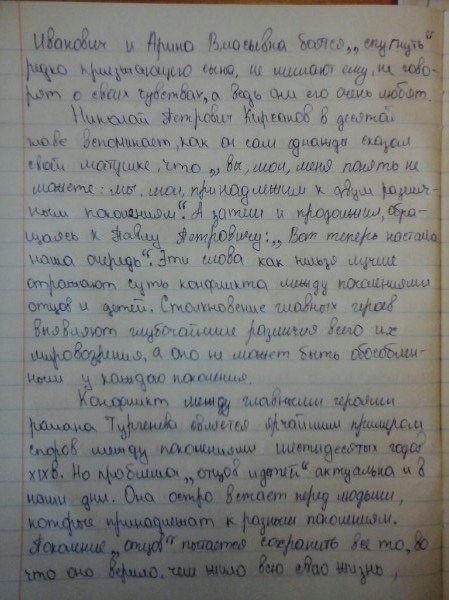 Иванович и Арина Власьевна боятся „спугнуть"
редко приезжающего сына, не мешают ему, не гово-
рят о своих чувствах, а ведь они его очень любят.
Николай Петрович Кирсанов в десятой
главе вспоминает, как он сам однажды сказал
своей матушке, что „вы, мол, меня понять не
можете: мы, мол, принадлежим к двум различ-
ным поколениям". А затем и продолжил, обра-
щаясь к Павлу Петровичу: „Вот теперь настала
наша очередь". Эти слова как нельзя лучше
отражают суть конфликта между поколениями
отцов и детей. Столкновение главных героев
выявляют глубочайшие различия всего их
мировоззрения, а оно не может быть обособлен-
ным у каждого поколения.
Конфликт между главными героями
романа Тургенева является ярчайшим примером
споров между поколениями шестидесятых годов
XIXв. Но проблема „отцов и детей" актуальна и в
наши дни. Она остро встает перед людьми,
которые принадлежат к разным поколениям.
Поколение „отцов" пытается сохранить все то, во
что оно верило, чем жило всю свою жизнь,